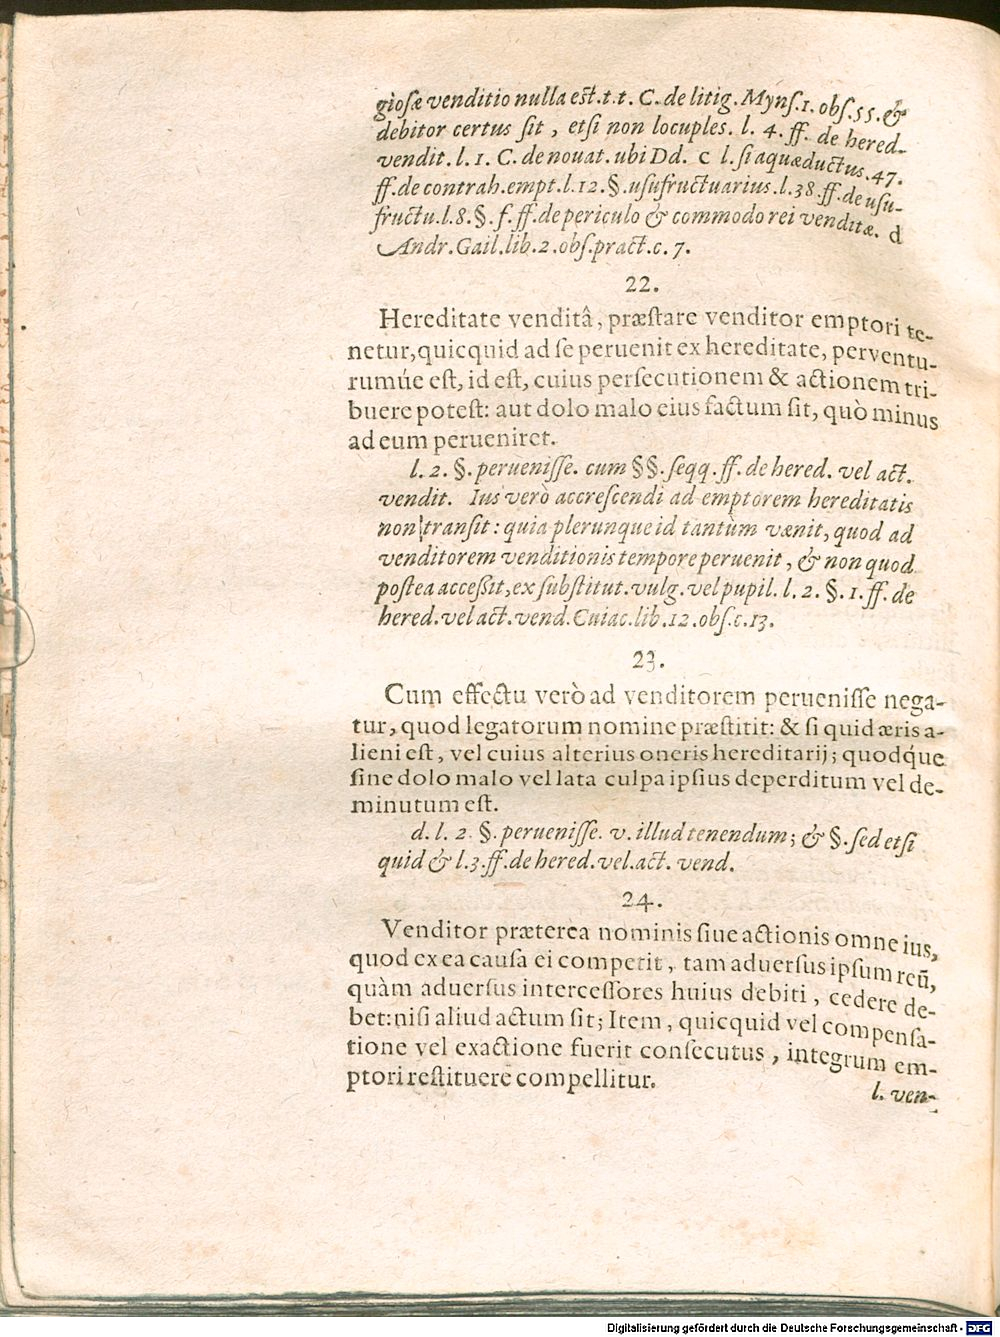 gioſæ venditio nulla est.t.t. C. de litig. Mynſ.1. obſ.55. &
debitor certus ſit , etſi non locuples. l. 4. ff. de hered-
vendit. l. 1. C. de nouat. ubi Dd. c l. ſi aquæductus. 47.
ff. de contrah. empt. l. 12. §. uſufructuarius. l. 38. ff. de uſu-
fructu. l. 8. §. f. ff. de periculo & commodo rei venditæ. d
Andr. Gail. lib. 2. obſ. pract. c. 7.
22.
Hereditate venditâ, præſtare venditor emptori te-
netur, quicquid ad ſe peruenit ex hereditate, perventu-
rumúe eſt, id eſt, cuius perſecutionem & actionem tri-
buere poteſt: aut dolo malo eius factum ſit, quò minus
ad eum perueniret.
l. 2. §. perueniſſe. cum §§. ſeqq. ff. de hered. vel act.
vendit. Ius verò accreſcendi ad emptorem hereditatis
non tranſit: quia plerunque id tantùm vænit, quod ad
venditorem venditionis tempore peruenit, & non quod
poſtea acceßit, ex ſubſtitut. vulg. vel pupil. l. 2. §. 1. ff. de
hered. vel act. vend. Cuiac. lib. 12. obſ. c. 13.
23.
Cum effectu verò ad venditorem perueniſſe nega-
tur, quod legatorum nomine præſtitit: & ſi quid æris a-
lieni eſt, vel cuius alterius oneris hereditarij; quodq́ue
ſine dolo malo vel lata culpa ipſius deperditum vel de-
minutum eſt.
d. l. 2. §. perueniſſe. v. illud tenendum; & §. ſed etſi
quid & l. 3. ff. de hered. vel. act. vend.
24.
Venditor præterea nominis ſiue actionis omne ius,
quod ex ea cauſa ei competit, tam aduerſus ipſum reũ,
quàm aduerſus interceſſores huius debiti, cedere de-
bet: niſi aliud actum ſit; Item, quicquid vel compenſa-
tione vel exactione fuerit conſecutus, integrum em-
ptori reſtituere compellitur.
l. ven-
Digitalisierung gefördert durch die Deutsche Forschungsgemeinschaft - DFG